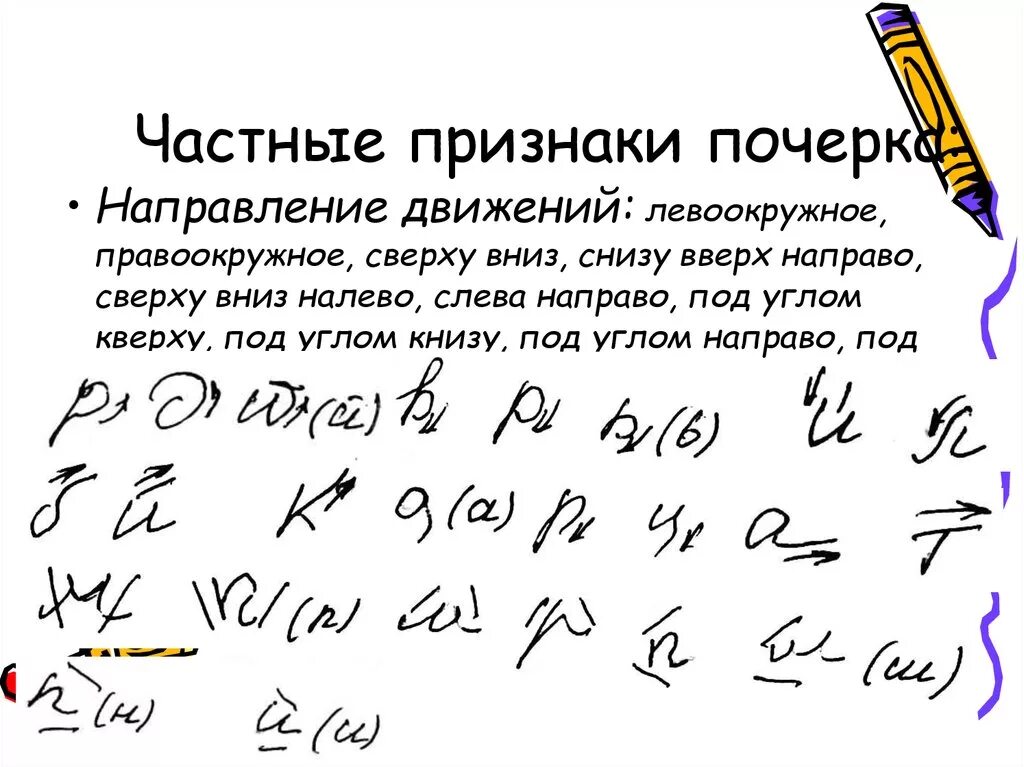 Частные признаки почерка:
• Направление движений: левоокружное,
правоокружное, сверху вниз, снизу вверх направо,
сверху вниз налево, слева направо, под углом
кверху, под углом книзу, под углом направо, под
р д й (а) в р в (в) и я
б и к а (а) р ч а т
ж п (п) и р п ш (ш)
н (н) и (и)